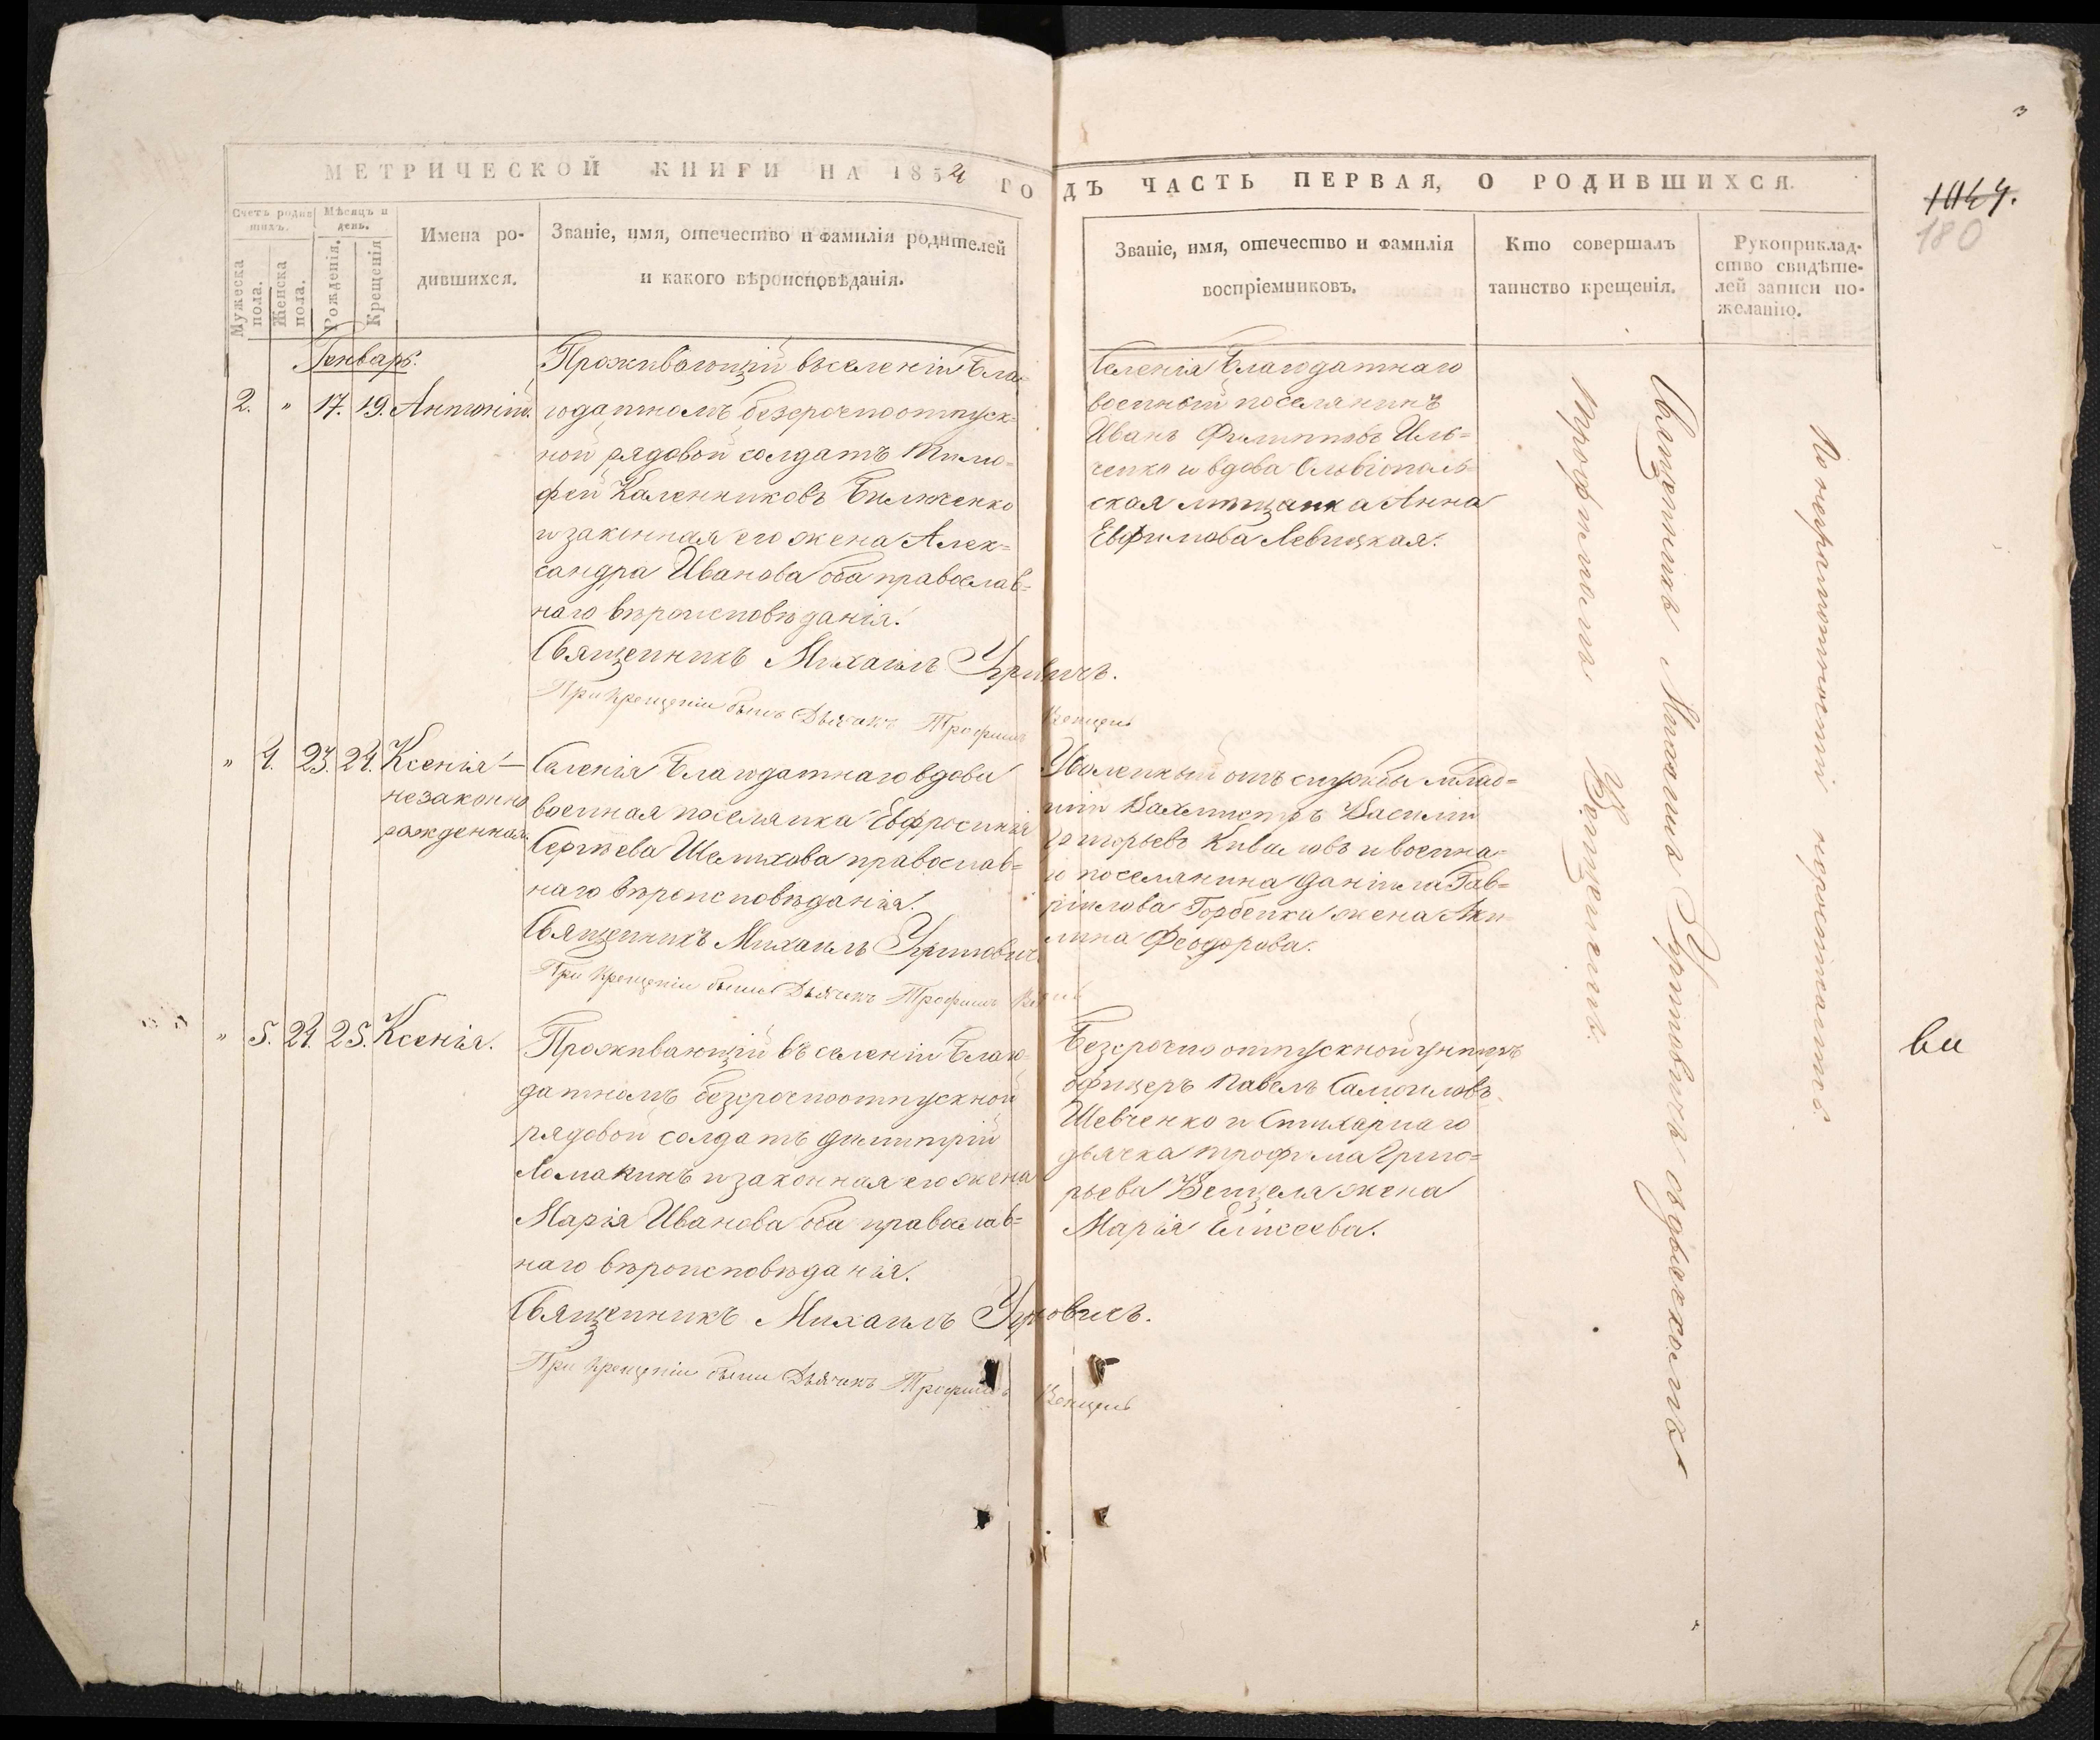 МЕТРИЧЕСКОЙ КНИГИ НА 1854 ГОДЪ ЧАСТЬ ПЕРВАЯ, О РОДИВШИХСЯ.
3
1044.
180
Счетъ родив
шихъ.
Мѣсяцъ и
день.
Мужеска
пола.
Женска
пола.
Рожденія.
Крещенія
Имена ро-
дившихся.
Званіе, имя, отечество и фамилія родителей
и какого вѣроисповѣданія.
Званіе, имя, отечество и фамилія
воспріемниковъ.
Кто совершалъ
таинство крещенія.
Рукоприклад-
ство свидѣте-
лей записи по-
желанію.
Генварь.
2. " 17. 19. Антоній.
Проживающій въ селеніи Бла-
годатномъ безсрочноотпуск-
ной рядовой солдатъ Тимо-
фей Каленниковъ Билюченко
и законная его жена Алек-
сандра Иванова оба православ-
наго вѣроисповѣданія.
Священникъ Михаилъ
При крещеніи былъ Дьячекъ Трофимъ Венцель
Селенія Благодатнаго
военный поселянинъ
Иванъ Филипповъ Иль-
ченко и вдова Ольвіополь-
ская мѣщанка Анна
Евфимова Левицкая.
" 4. 23. 24. Ксенія —
незаконно
рожденная.
Селенія Благодатнаго вдова
военная поселянка Евфросинія
Сергѣева Шелихова православ-
наго вѣроисповѣданія.
Священникъ Михаилъ
При крещеніи былъ Дьячекъ Трофимъ
Уволенный отъ службы млад-
шій Вахмистръ Василій
Григорьевъ и военна-
го поселянина Даніила Гав-
ріилова Горбенка жена Аки-
лина Феодорова.
" 5. 24. 25. Ксенія.
Проживающій въ селеніи Благо-
датномъ безсрочноотпускной
рядовой солдатъ Димитрій
Ломакинъ и законная его жена
Марія Иванова оба православ-
наго вѣроисповѣданія.
Священникъ Михаилъ
При крещеніи былъ Дьячекъ Трофимъ Венцель
Безсрочно отпускной унтеръ
офицеръ Павелъ Самоиловъ
Шевченко и Стихарнаго
дьячка Трофима Григо-
рьева Венцеля жена
Марія Елисеева.
Священникъ Михаилъ съ дьячкомъ
Трофимомъ Венцелемъ.
По неграмотности неросписались.